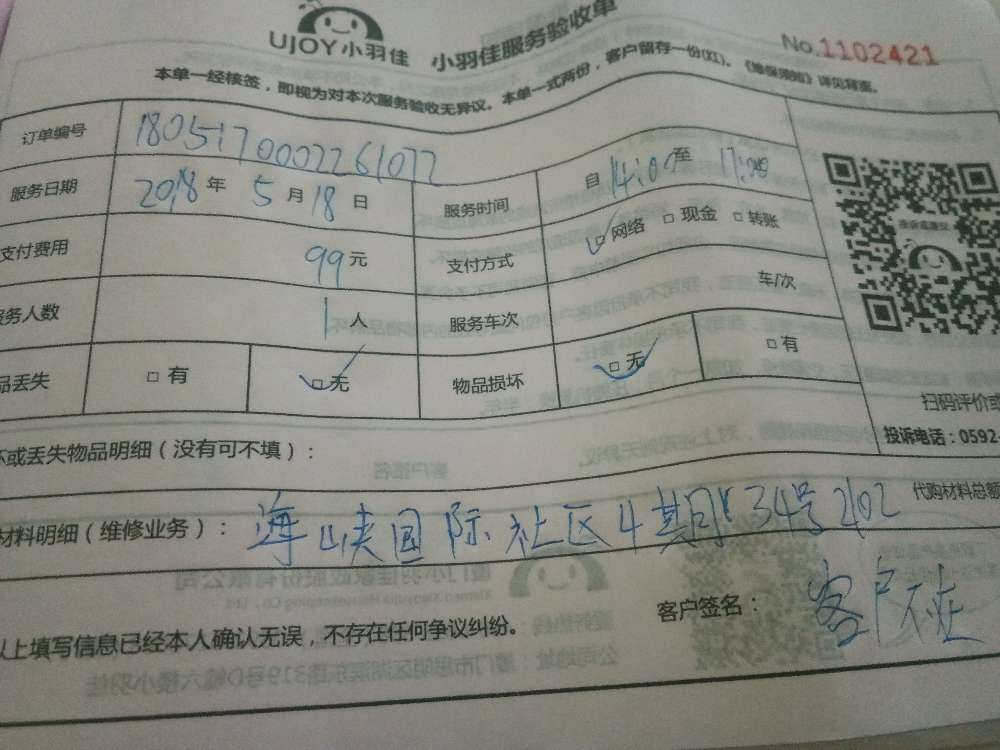 UJOY小羽佳 小羽佳服务验收单
No.1102421
本单一经核签，即视为对本次服务验收无异议。本单一式两份，客户留存一份(红)。《维保须知》详见背面。
订单编号 1805170002261072
服务日期 2018年5月18日 服务时间 自14:00至17:00
支付费用 99元 支付方式 □网络 □现金 □转账
务人数 1人 服务车次 车/次
品丢失 □有 □无 物品损坏 □无 □有
扫码评价或
投诉电话：0592-
坏或丢失物品明细（没有可不填）：
材料明细（维修业务）：海峡国际社区4期34号202 代购材料总额
以上填写信息已经本人确认无误，不存在任何争议纠纷。 客户签名：客户不在